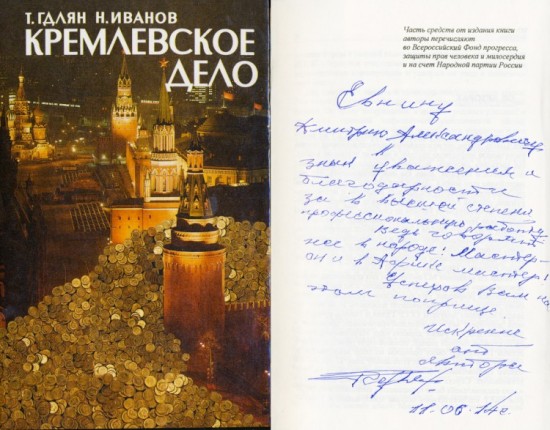 Т. ГДЛЯН Н. ИВАНОВ
КРЕМЛЕВСКОЕ
ДЕЛО
Часть средств от издания книги
авторы перечисляют
во Всероссийский Фонд прогресса,
защиты прав человека и милосердия
и на счет Народной партии России
Евнину
Дмитрию Александровичу
в
знак уважения и
благодарности
за в высшей степени
профессиональную работу.
Ведь говорит-
ся в народе: Мастер-
он и в Африке мастер!
Успехов Вам на
этом поприще.
Искренне
от
автора
11.06.14г.